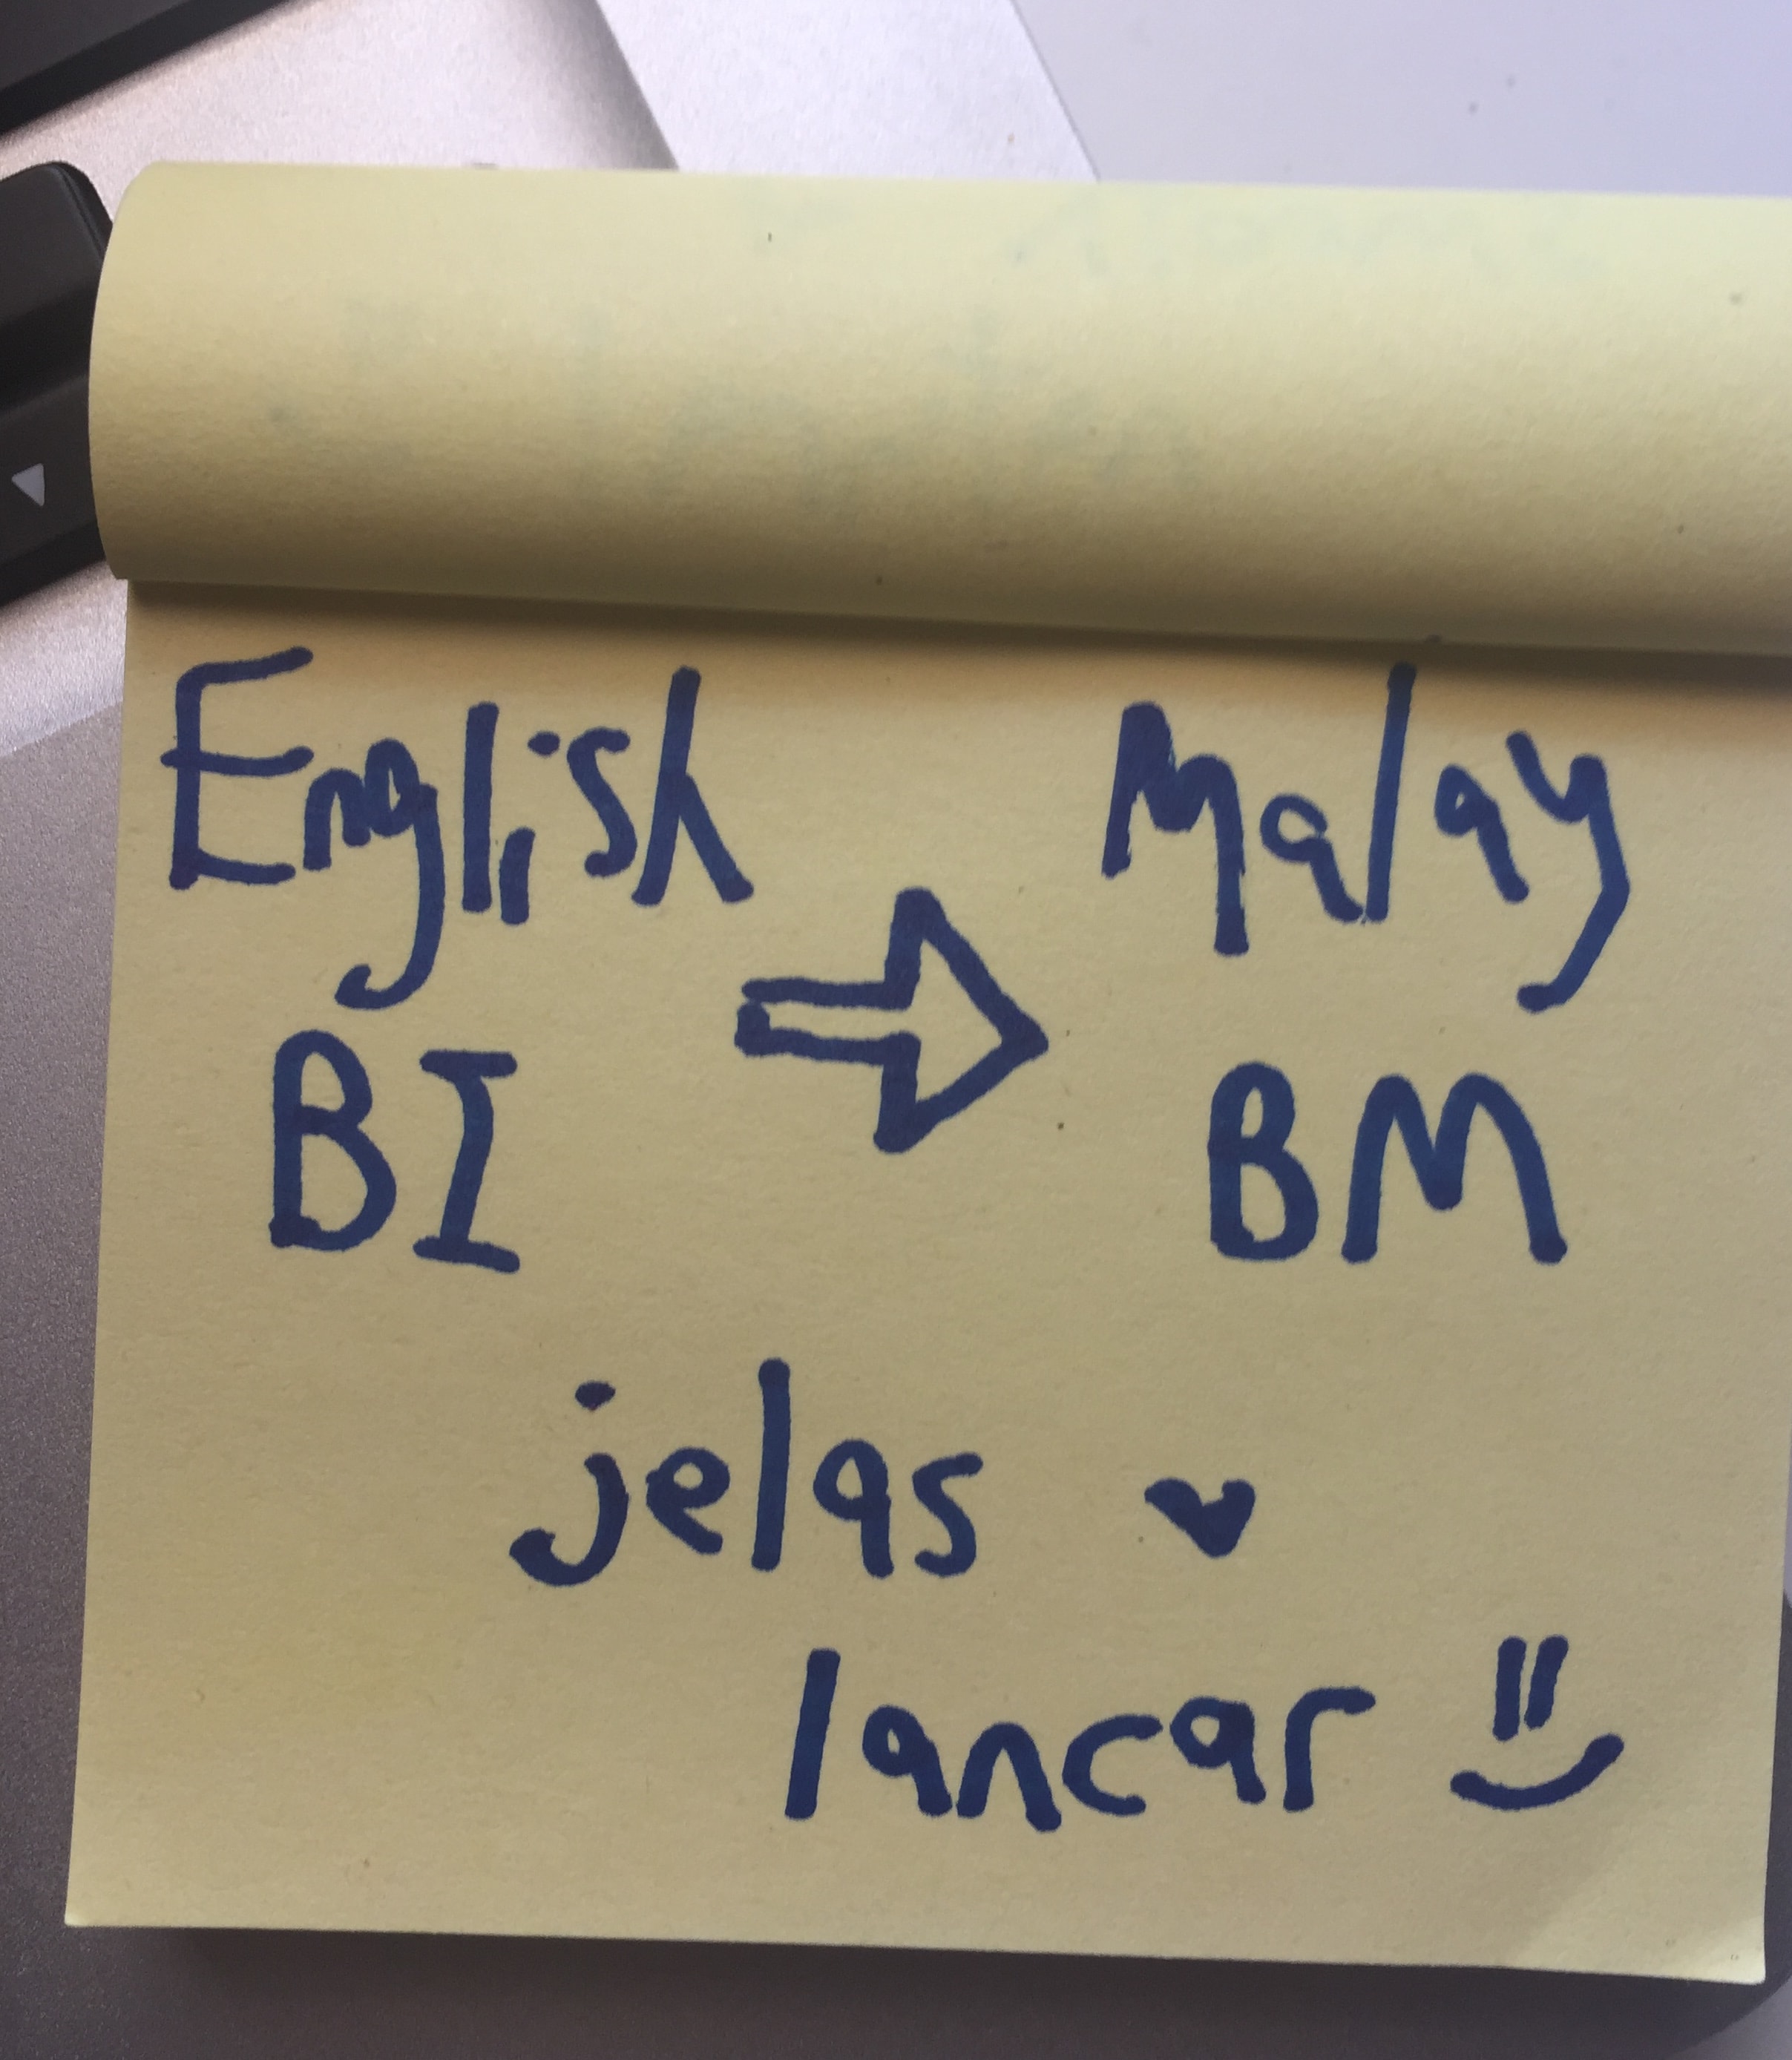 English Malay
BI BM
jelas
lancar